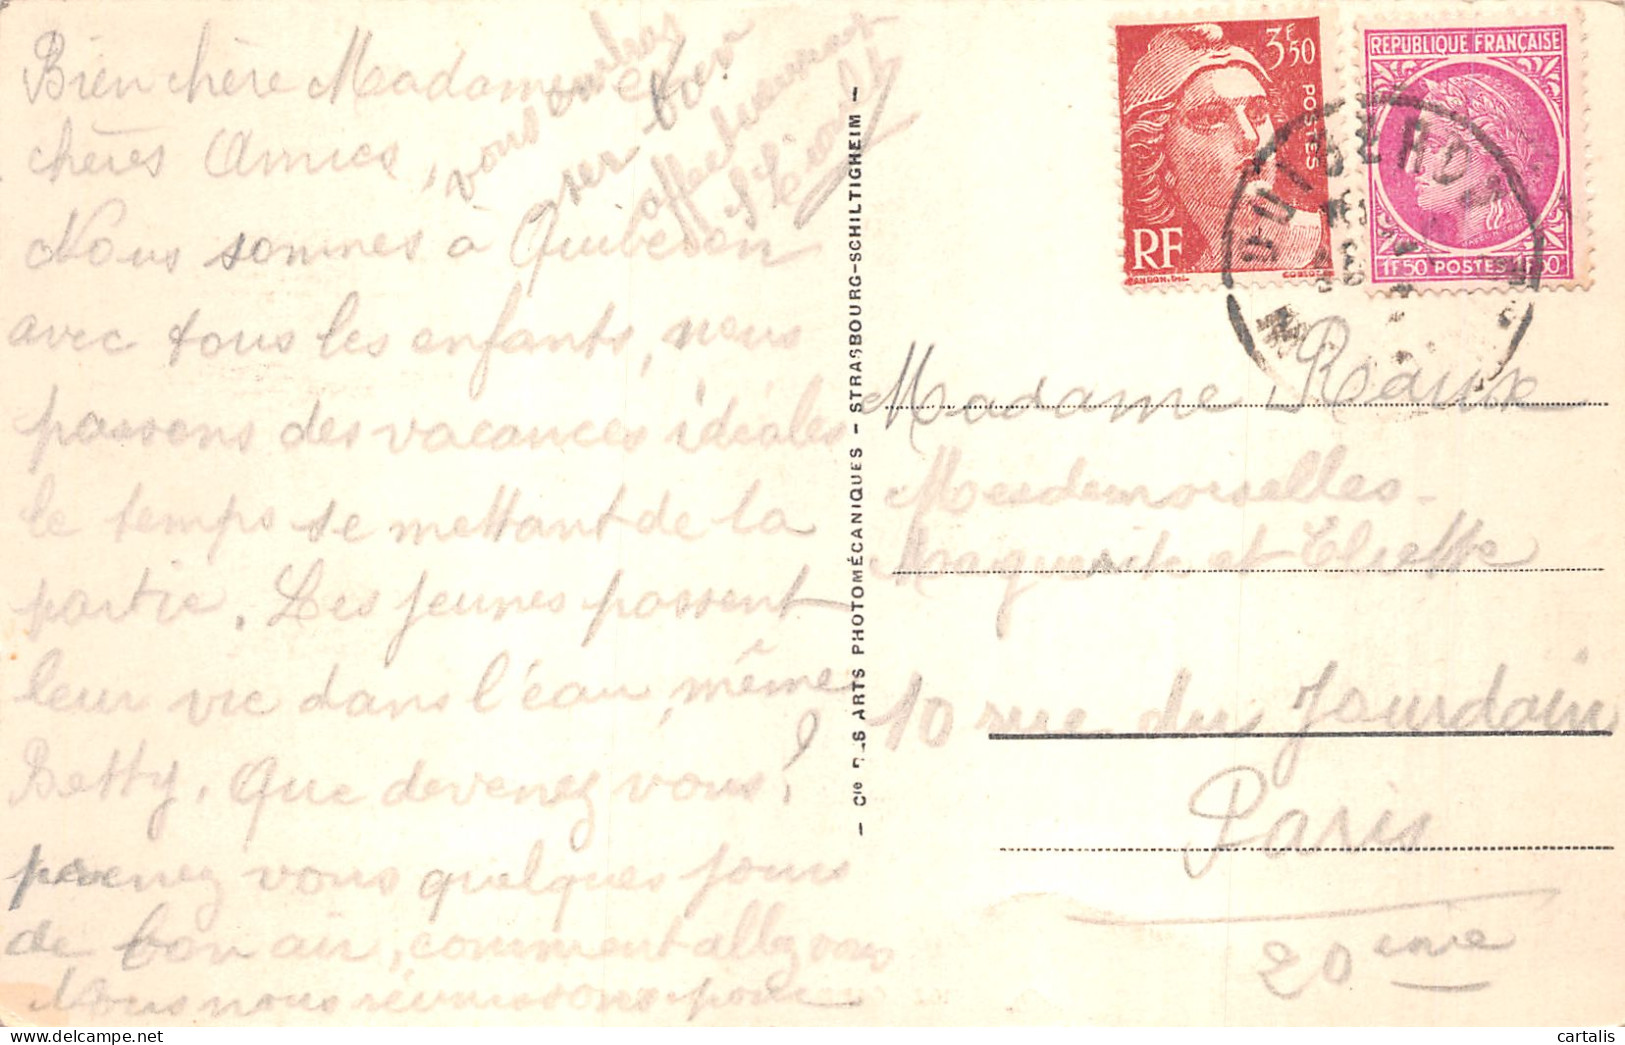 Bien chère Madame et
chères Amies,
Nous sommes à Quiberon
avec tous les enfants, nous
passons des vacances idéales
le temps se mettant de la
partie. Les jeunes passent
leur vie dans l'éau, même
Betty. Que devenez vous?
prenez vous quelques jours
de bon air, comment allez vous
Nous nous réunissons pour
vous embras
ser bien
affectueusement
- Cie DES ARTS PHOTOMÉCANIQUES - STRASBOURG-SCHILTIGHEIM -
3F50
POSTES
RF
GANDON.DEL
REPUBLIQUE FRANÇAISE
1F50 POSTES
QUIBERON
Madame Raux
Mesdemoiselles
Marguerite et Eliette
10 rue du Jourdain
Paris
20ème
cartalis